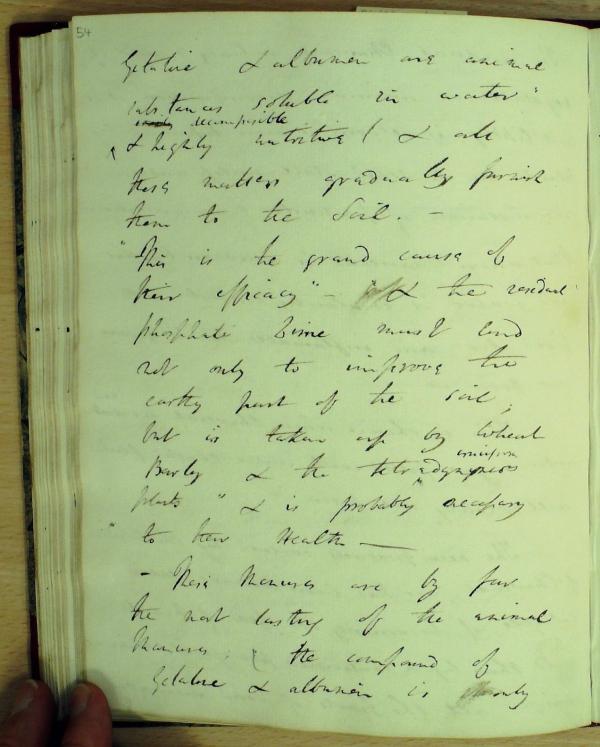 54
Gelatine & albumen are animal
substances soluble in water "
easily decomposible
& highly nutritive / & all
these matters gradually furnish
them to the Soil. –
"This is the grand cause of
their efficacy" – & the residual
phosphate Lime must tend
not only to improve the
earthy part of the soil,
but is taken up by Wheat
cruciform
Barley & the tetradynamous
plants " & is probably necessary
" to their Health —
– These Manures are by far
the most lasting of the animal
Manures; the compound of
Gelatine & albumen is only